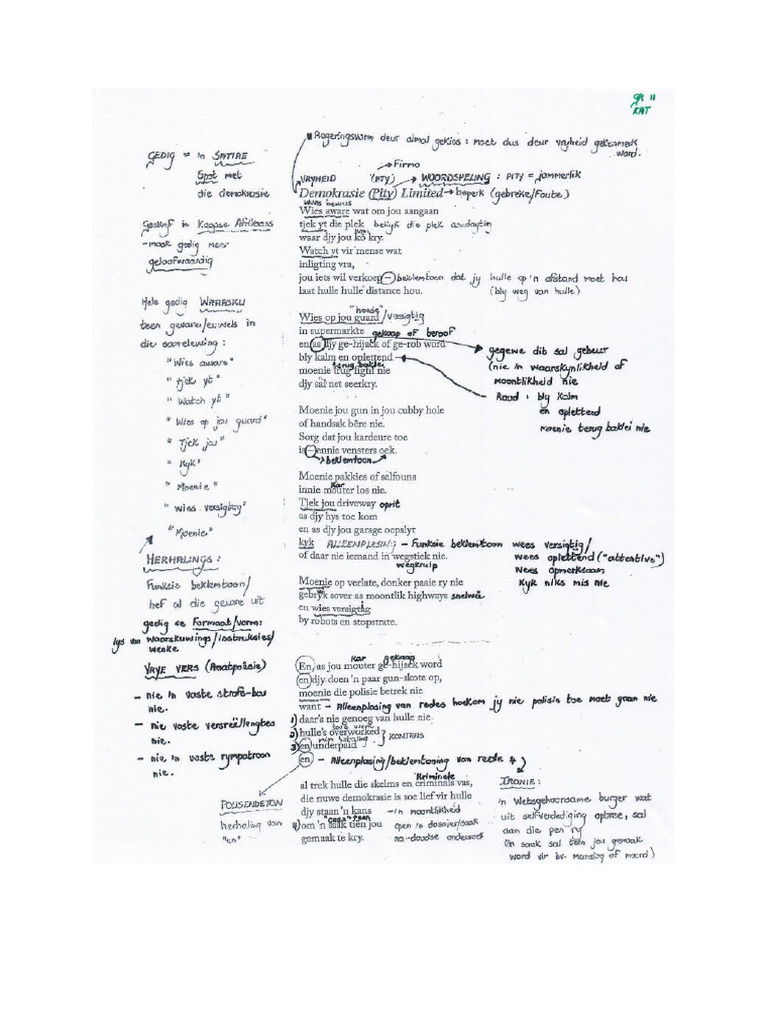 GR 11
EAT
Regeringsvorm deur almal gekies : moet dus deur vryheid gekenmerk word.
GEDIG = 'n SATIRE
Spot met
die demokrasie
Firma
VRYHEID (PTY) WOORDSPELING : PITY = jammerlik
Demokrasie (Pity) Limited beperk (gebreke/foute)
wees bewus
Wies aware wat om jou aangaan
Geskryf in Kaapse Afrikaans
tjek yt die plek bekyk die plek aandagtig
kan
waar djy jou kô kry.
- maak gedig meer
geloofwaardig
Watch yt vir mense wat
inligting vra,
jou iets wil verkoep – beklemtoon dat jy hulle op 'n afstand moet hou
laast hulle hulle distance hou. (bly weg van hulle)
Hele gedig WAARSKU
teen gevare/euwels in
die samelewing :
"Wies aware"
"tjek yt"
"Watch yt"
"Wies op jou guard"
"Tjek jou"
"Kyk"
"Moenie"
"wies versigtig"
"Moenie"
"hoede"
Wies op jou guard /versigtig
in supermarkte gekaap of beroof
en as djy ge-hijack of ge-rob word
bly kalm en oplettend
terug baklei
moenie trug fight nie
djy sal net seerkry.
gegewe dit sal gebeur
(nie in waarskynlikheid of
moontlikheid nie
Raad : bly kalm
en oplettend
moenie terug baklei nie
Moenie jou gun in jou cubby hole
of handsak bêre nie.
Sorg dat jou kardeure toe
is – ennie vensters oek.
beklemtoon
Moenie pakkies of selfouns
Kar
innie mouter los nie.
Tjek jou driveway oprit
as djy hys toe kom
en as djy jou garage oepslyt
kyk ALLEENPLASING – Funksie beklemtoon wees versigtig/
of daar nie iemand in wegstiek nie. wees oplettend ("attentive")
wegkruip
Wees opmerksaam
Kyk niks mis nie
HERHALINGS :
Funksie beklemtoon/
hef al die gevare uit
Moenie op verlate, donker paaie ry nie
gebryk sover as moontlik highways snelweë
en wies versigtig
by robots en stopstrate.
gedig se Formaat/vorm:
lys van waarskuwings/instruksies/
wenke
VRYE VERS (Praatpoësie)
- nie 'n vaste strofe-bou
nie.
- nie vaste versreëllengtes
nie.
- nie 'n vaste rympatroon
nie.
Kar gekaap
En, as jou mouter ge-hijack word
en djy doen 'n paar gun-skote op,
moenie die polisie betrek nie
want – Alleenplasing van redes hoekom jy nie polisie toe moet gaan nie
1) daar's nie genoeg van hulle nie.
2) hulle's overworked
3) en underpaid
KONTRAS
en – Alleenplasing/beklemtoning van rede 4
Kriminele
al trek hulle die skelms en criminals vas,
die nuwe demokrasie is soe lief vir hulle
djy staan 'n kans – 'n moontlikheid
"case" teen
4) om 'n saak tien jou open 'n dossier/saak
gemaak te kry. na-doodse ondersoek
POLISINDETON
herhaling van
"en"
IRONIE :
'n Wetsgehoorsame burger wat
uit selfverdediging optree, sal
aan die pen ry
('n saak sal teen jou gemaak
word vir bv. manslag of moord)